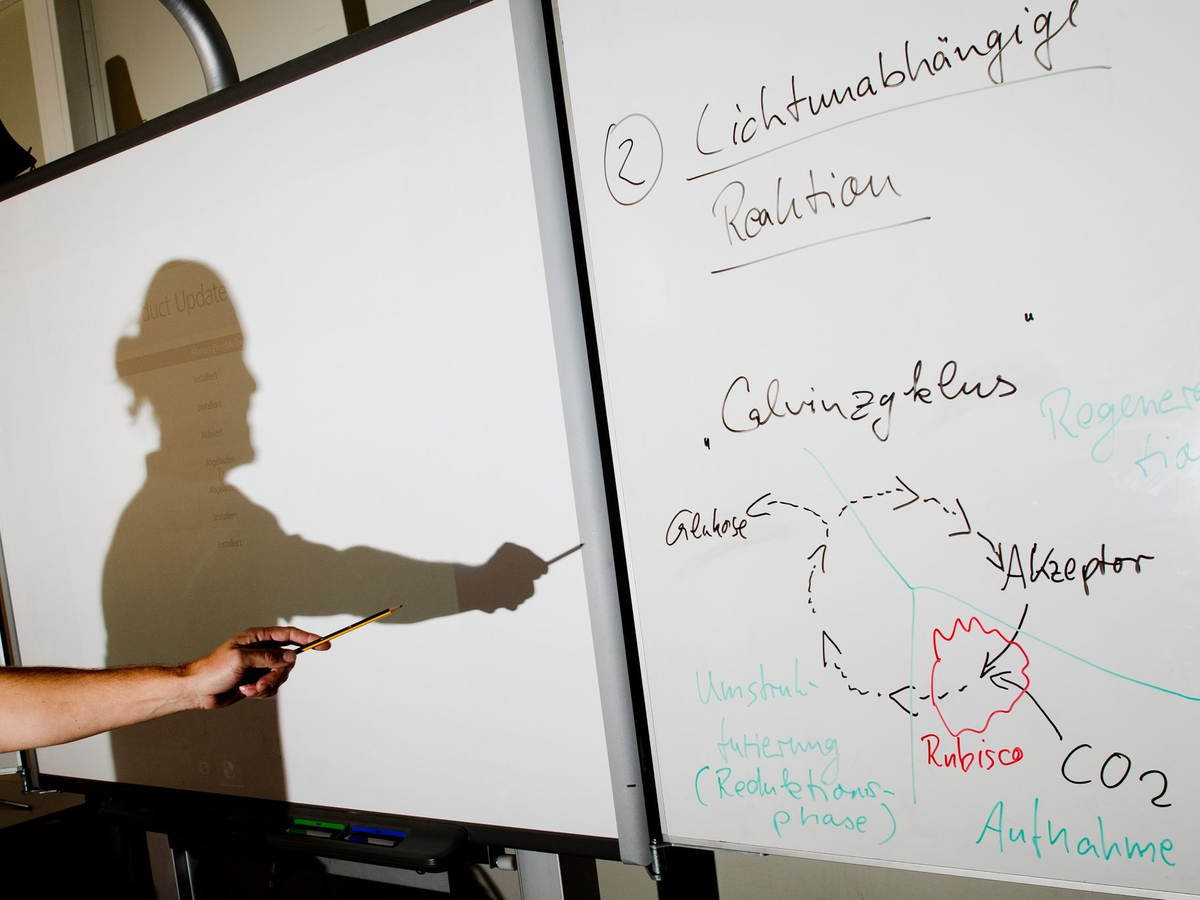 duct Update
Installiert
Installiert
Installiert
Installiert
② Lichtunabhängige
Reaktion
„Calvinzyklus"
Regenera
tio
Glukose
Akzeptor
Umstruk-
turierung
(Reduktions-
phase)
Rubisco
CO2
Aufnahme